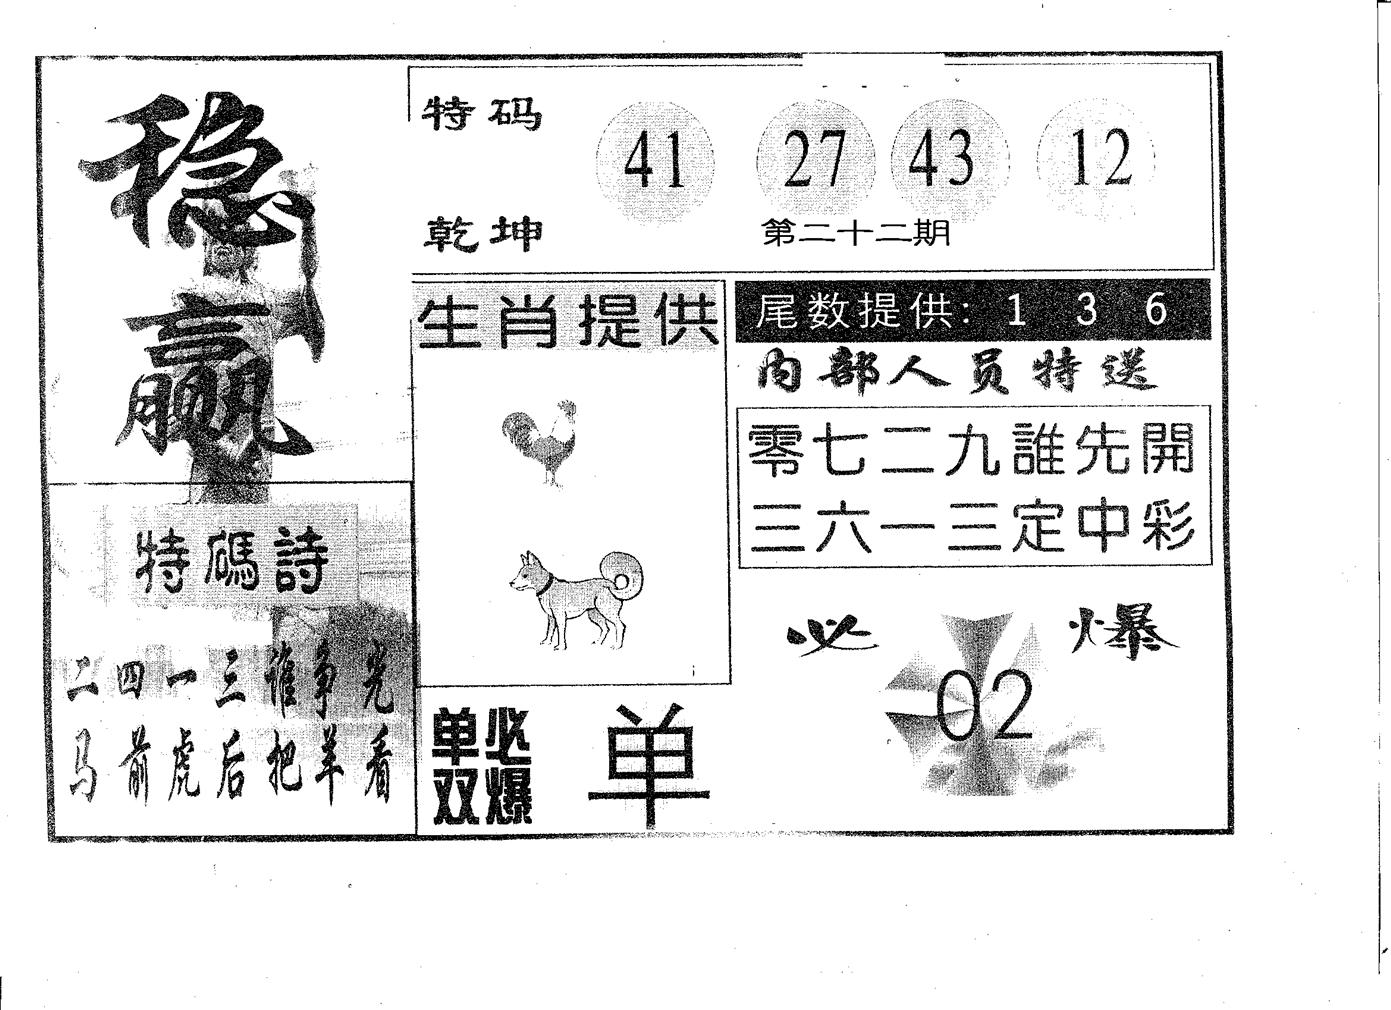 稳赢
特码
41 27 43 12
乾坤
第二十二期
生肖提供
尾数提供: 1 3 6
内部人员特送
零七二九誰先開
三六一三定中彩
特碼詩
二四一三谁争光
马前虎后把羊看
单必
双爆
单
必爆
02